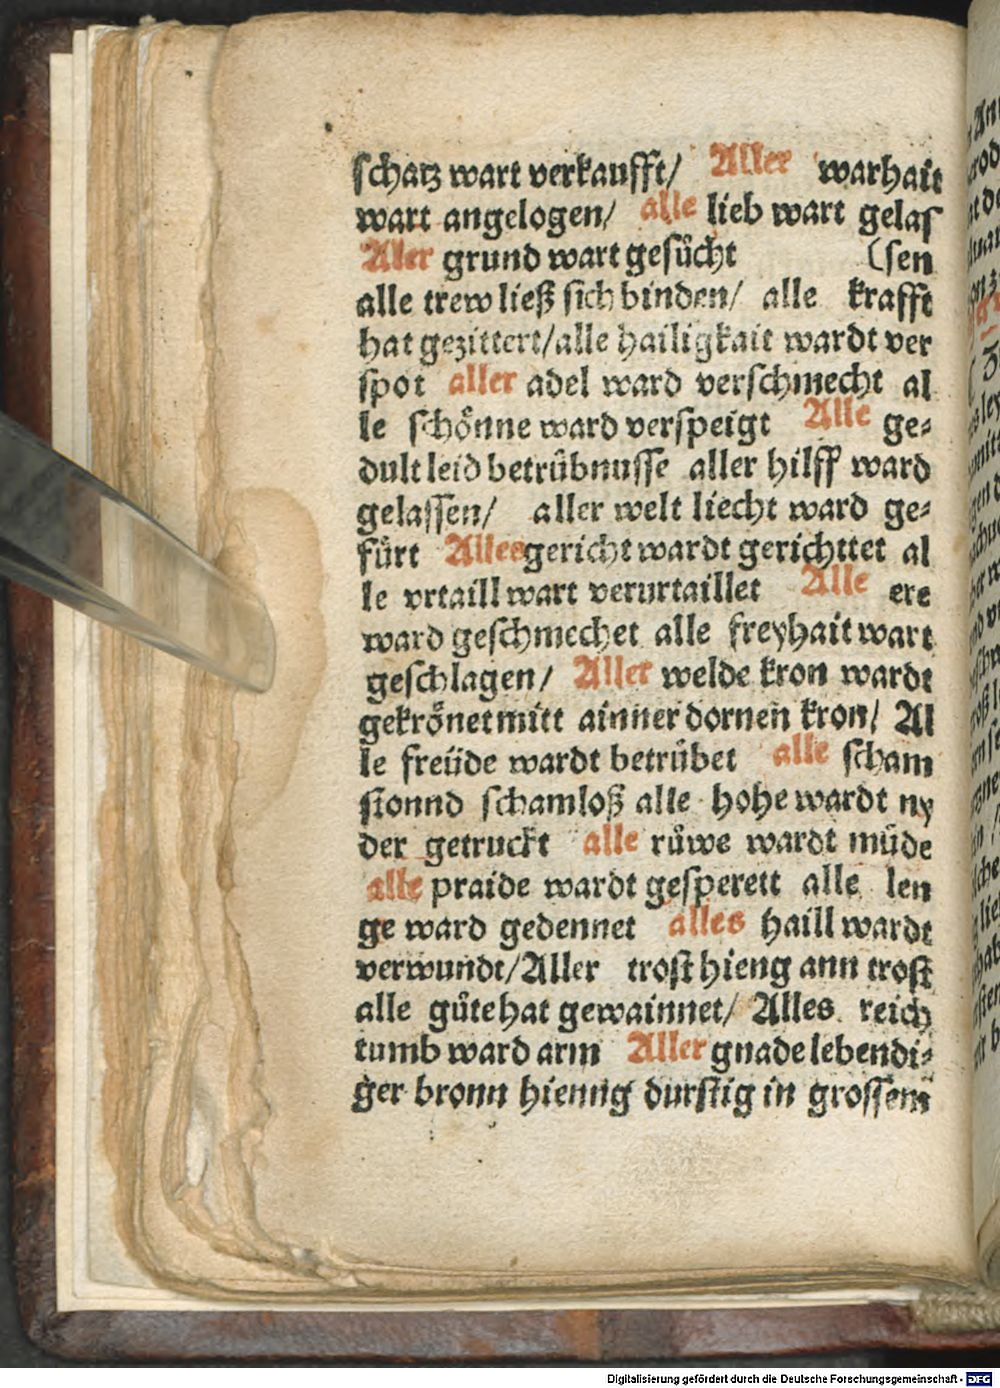 schatz wart verkaufft/ Aller warhait
wart angelogen/ alle lieb wart gelas
Aller grund wart gesůcht (sen
alle trew ließ sich binden/ alle krafft
hat gezittert/alle hailigkait wardt ver
spot aller adel ward verschmecht al
le schönne ward verspeigt Alle ge⸗
dult leid betrůbnusse aller hilff ward
gelassen/ aller welt liecht ward ge⸗
fürt Alles gericht wardt gerichttet al
le vrtaill wart verurtaillet Alle ere
ward geschmechet alle freyhait wart
geschlagen/ Aller welde kron wardt
gekrönet mitt ainner dornen kron/ Al
le freüde wardt betrůbet alle scham
stonnd schamloß alle hohe wardt ny
der getruckt alle růwe wardt müde
alle praide wardt gesperett alle len
ge ward gedennet alles haill wardt
verwundt/Aller trost hieng ann trost
alle gůte hat gewainnet/ Alles reich
tumb ward arm Aller gnade lebendi⸗
ger bronn hienng durstig in grossem
Digitalisierung gefördert durch die Deutsche Forschungsgemeinschaft - DFG